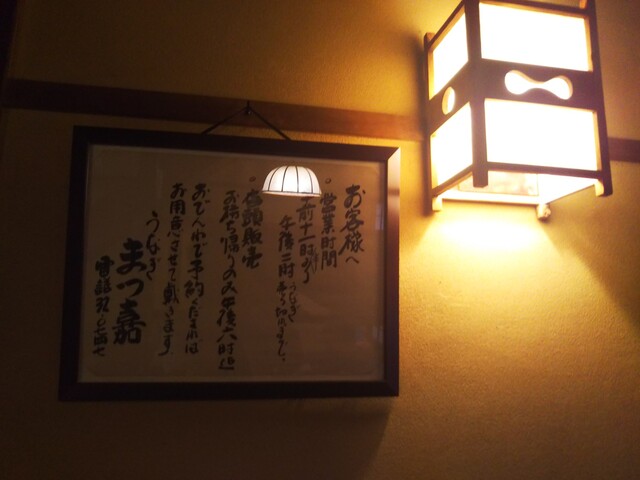 お客様へ
営業時間
午前十一時より
午後二時 うなぎ 売り切れまで。
店頭販売
お持ち帰りのみ午後六時迄
おでんわで予約くだされば
お用意させて戴きます。
うなぎ
まつ嘉
電話